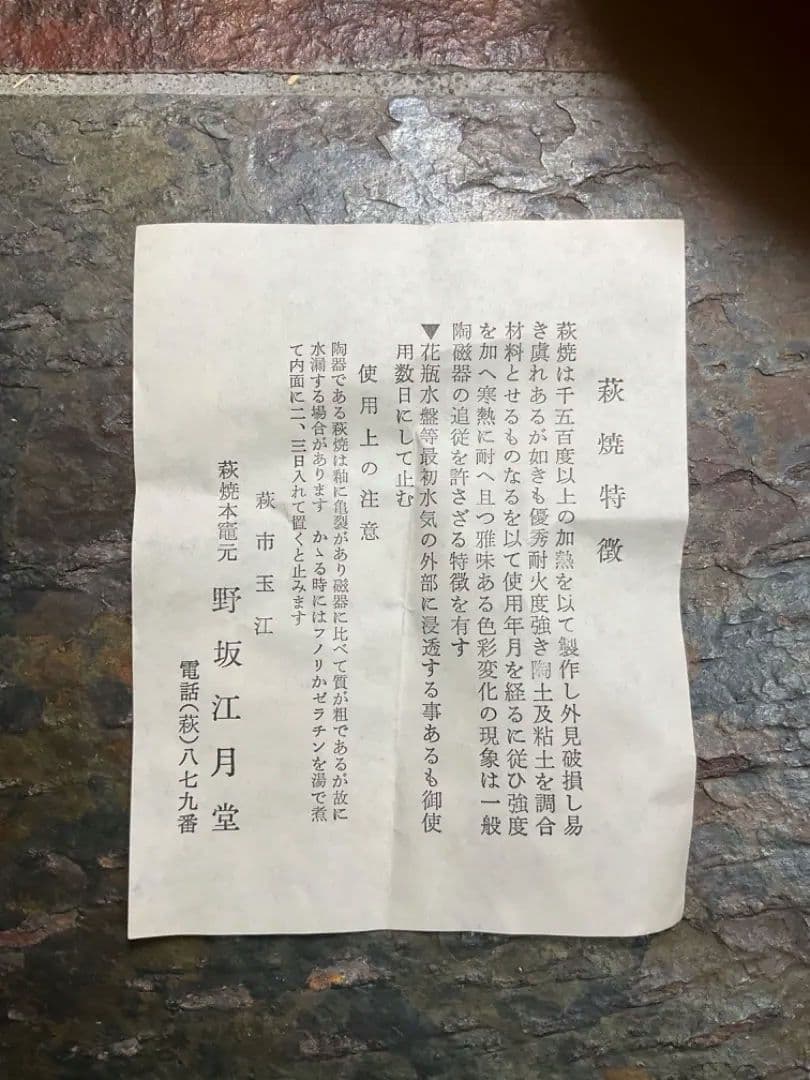 萩焼特徴
萩焼は千五百度以上の加熱を以て製作し外見破損し易
き虞れあるが如きも優秀耐火度強き陶土及粘土を調合
材料とせるものなるを以て使用年月を経るに従ひ強度
を加へ寒熱に耐へ且つ雅味ある色彩変化の現象は一般
陶磁器の追従を許さざる特徴を有す
▼花瓶水盤等最初水気の外部に浸透する事あるも御使
用数日にして止む
使用上の注意
陶器である萩焼は釉に亀裂があり磁器に比べて質が粗であるが故に
水漏する場合があります かゝる時にはフノリかゼラチンを湯で煮
て内面に二、三日入れて置くと止みます
萩市玉江
萩焼本竈元 野坂江月堂
電話(萩)八七九番